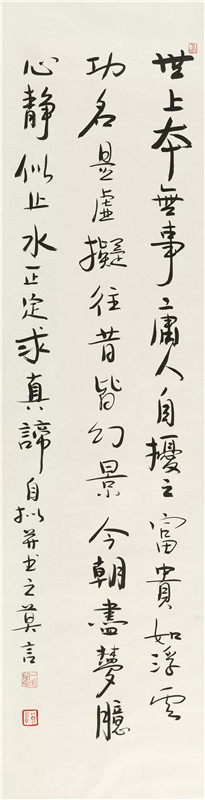 世上本無事庸人自擾之富貴如浮雲
功名是虛擬往昔皆幻景今朝盡夢臆
心靜似止水正定求真諦自擬并書之莫言